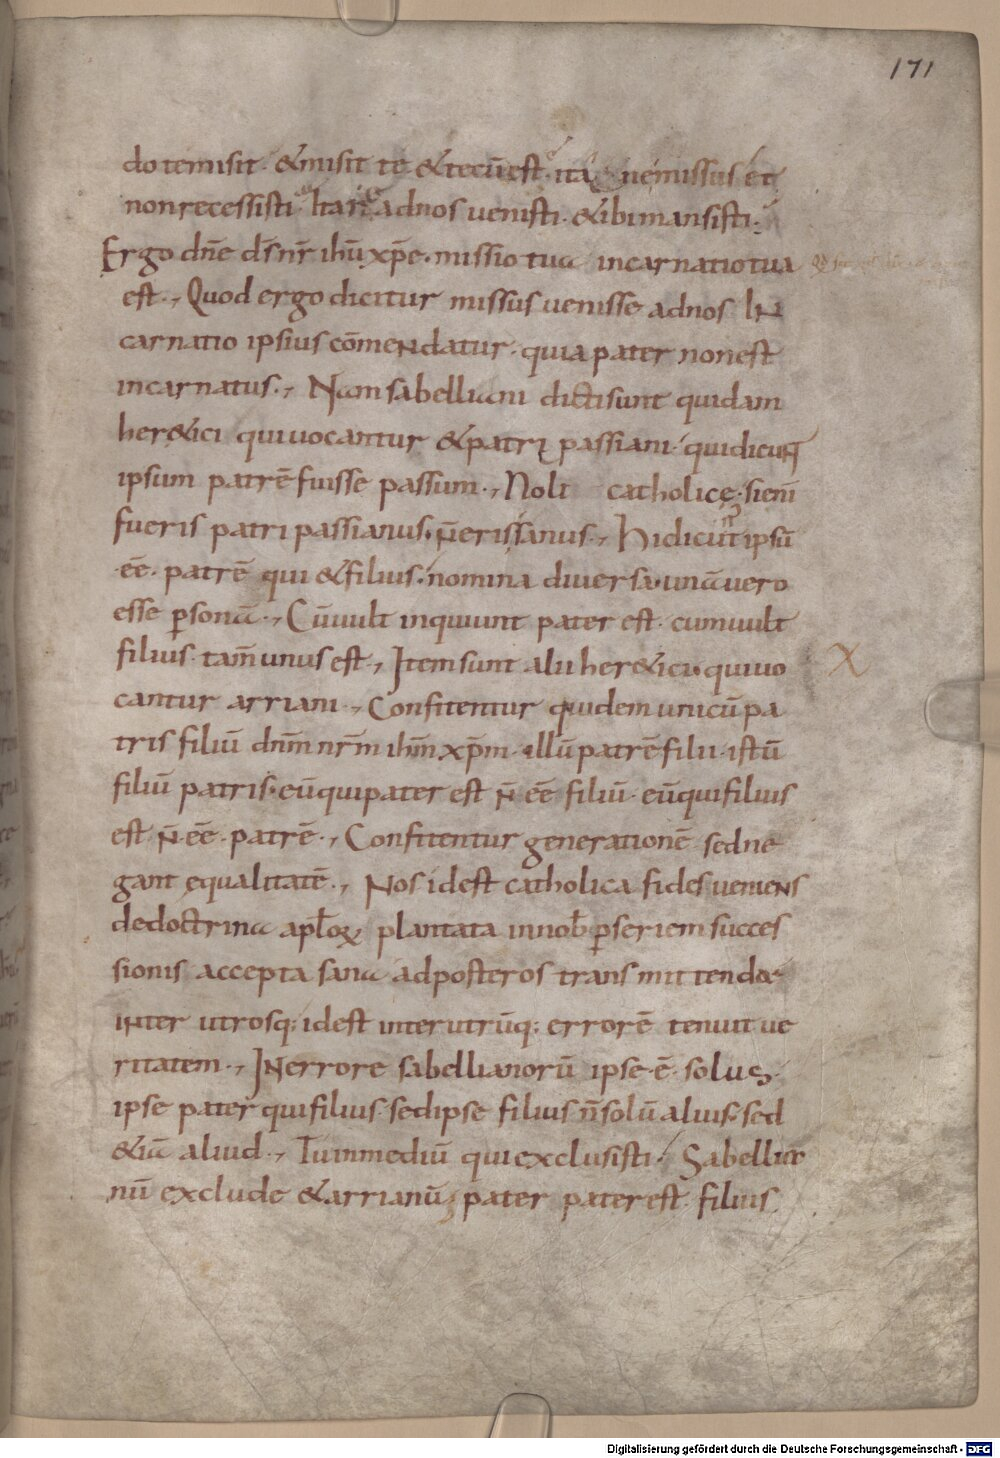 171
do te misit · & misit te & tecū est · ita uemissus et
non recessisti · ad nos uenisti · & ibi mansisti ·
Ergo dn̄e ds̄ nr̄ ihū xp̄e · missio tua incarnatio tua
est ·, Quod ergo dicitur missus uenisse ad nos IN
carnatio ipsius cōmeNdatur · quia pater non est
incarnatus ·, Nam sabelliani dicti sunt quidam
her&ici qui uocantur & patri passiani · qui dicunt
ipsum patrē fuisse passum ·, Noli catholice · si eni
fueris patri passianus · n̄ eris sanus ·, Hi dicunt ipsū
·eē· patrē qui & filius · nomina diuersa · unā uero
esse p̄sonā ·, Cū uult inquiunt pater est · cum uult
filius · tam̄ unus est ·, Item sunt alii her&ici · qui uo
X
cantur arriani ·, Confitentur quidem unicū pa
tris filiū dnm̄ nrm̄ ihm̄ xp̄m · illū patrē filii · istū
filiū patris · eū qui pater est n̄ eē filiū · eū qui filius
est n̄ · eē · patrē ·, Confitentur generationē sed ne
gant ęqualitatē ·, Nos id est catholica fides ueniens
de doctrina apl̄oꝝ plantata in nob̄ p̄ seriem succes
sionis accepta sana ad posteros transmittenda
iNter utrosq; id est inter utrūq; errorē tenuit ue
ritatem ·, IN errore sabellianorū ipse · ē · solus ·
ipse pater qui filius · sed ipse filius n̄ solū alius · sed
&iā aliud ·, Tu in mediū qui exclusisti · Sabellia
nū exclude & arrianū · pater pater est · filius
Digitalisierung gefördert durch die Deutsche Forschungsgemeinschaft - DFG